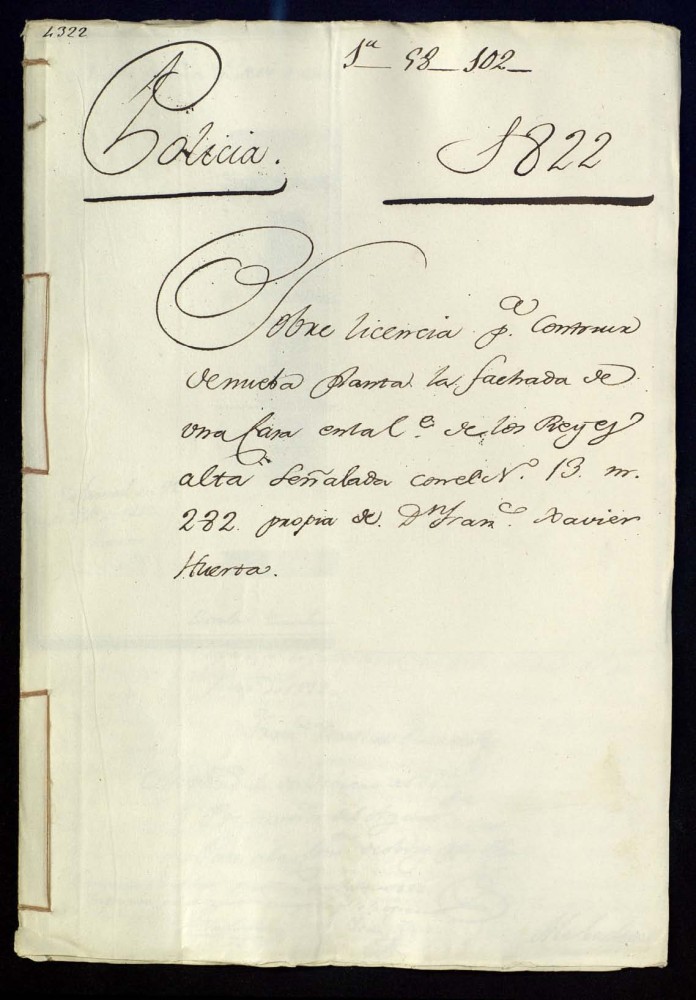 4322
1ª 58 102
Policia.
1822
Sobre licencia p.ª Construir
de nueba Planta la fachada de
una Casa en la C.e de los Reyes
alta Señalada con el N.º 13. m.
282. propia de Dn Fran.co Xavier
Huerta.